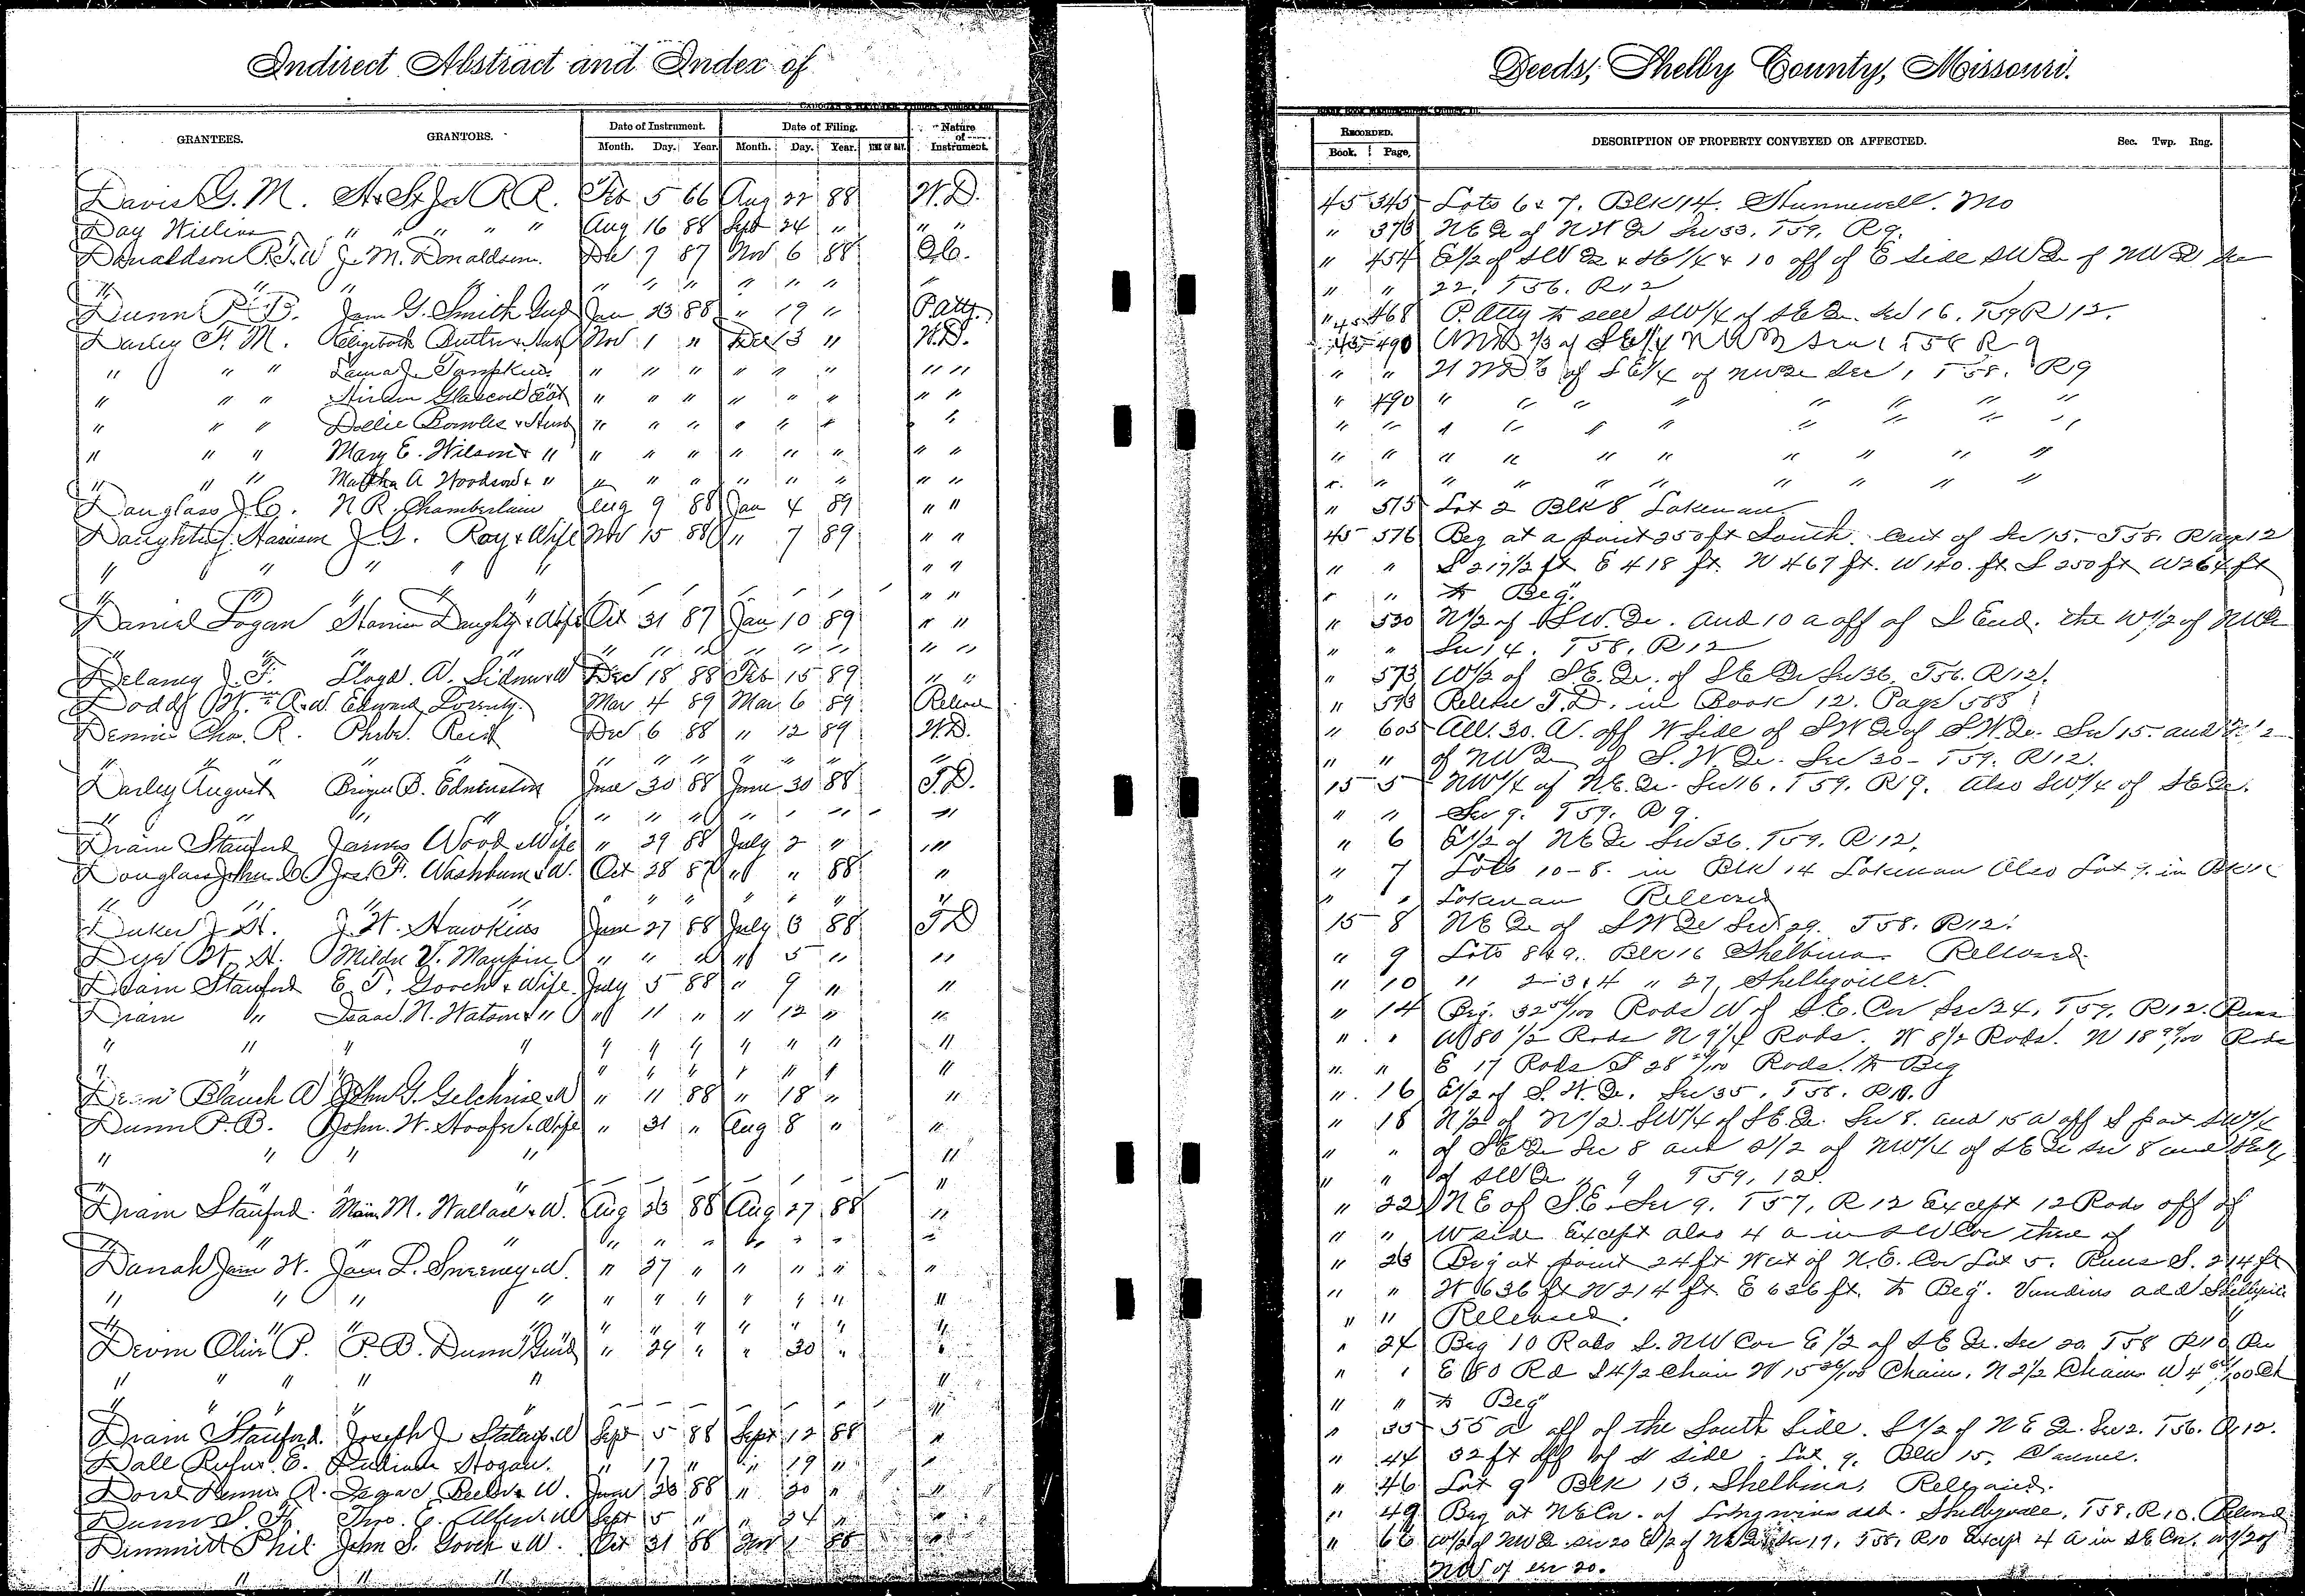 Indirect Abstract and Index of
Deeds, Shelby County, Missouri.
GRANTEES. GRANTORS. Date of Instrument. Date of Filing. Nature of Instrument.
Month. Day. Year. Month. Day. Year. TIME OF DAY.
RECORDED. DESCRIPTION OF PROPERTY CONVEYED OR AFFECTED. Sec. Twp. Rng.
Book. Page.
Davis G. M. H & St Jo R R. Feb 5 66 Aug 22 88 W.D. 45 345 Lots 6 & 7. Blk 14. Hunnewell. Mo
Day William " " " " Aug 16 88 Sept 24 " " " " 373 NE Qr of NW Qr Sec 33. T59. R9.
Donaldson R.T.W J. M. Donaldson. Dec 7 87 Nov 6 88 Q.C. " 454 E1/2 of SW Qr & SE1/4 & 10 off of E Side SW Qr of NW Qr Sec
" " " " " " " " " " " 22. T56. R12
Dunn P. B. Jam G. Smith Jan 23 88 " 19 " P.Atty. " 45 468 P. Atty to sell SW1/4 of SE Qr. Sec 16. T59 R12.
Darley F. M. Elizabeth Butler & Nov 1 " Dec 3 " W.D. 45 490 1/3 of SE1/4 Sec 1 T58 R9
" " " Laura J. Tompkins " " " " " " " " " " of SE1/4 of NW Qr Sec 1, T58. R9
" " " Hiram Glascock " " " " " " " " " 490 " " " " " " " "
" " " Dollie Bowles & Husb " " " " " " " " " " " " " " " " "
" " " Mary E. Wilson & " " " " " " " " " " " " " " " " " " "
" " " Martha A Woodson & " " " " " " " " " " " " " " " " " " "
Douglass J. C. N R. Chamberlain Aug 9 88 Jan 4 89 " " " 515 Lot 2 Blk 8 Lakenan
Daughty Harrison J. G. Ray & Wife Nov 15 88 " 7 89 " " 45 516 Beg at a point 250 ft South. Cent of Sec 15. T58. Rang 12
" " " " " " " " " S 217 1/2 ft E 418 ft. N 467 ft. W 140. ft S 250 ft W 264 ft
" " " " " " to Beg.
Daniel Logan Harrison Daughty & Wife Oct 31 87 Jan 10 89 " " " 530 N1/2 of SW. Qr. and 10 a off of S End. the W1/2 of NW Qr
" " " " " " " " " " " " " Sec 14. T58. R12
Delaney J. F. Lloyd. A. Dec 18 88 Feb 15 89 " " " 573 W1/2 of S.E. Qr. of SE Qr Sec 36. T56. R12.
Dodds Wm A. W. Edward Mar 4 89 Mar 6 89 Release " 593 Release T.D. in Book 12. Page 588
Dennis Cha. R. Phebe Reid Dec 6 88 " 12 89 W.D. " 605 All. 30. A. off W Side of SW Qr of S.W. Qr. Sec 15 and 1/2
" " " " " " " " " " " of NW Qr of S.W. Qr. Sec 20 - T59. R12.
Darley August B. Edmunston June 30 88 June 30 88 T.D. 15 5 NW1/4 of N.E. Qr. Sec 16. T59. R9. Also SW1/4 of SE Qr.
" " " " " " " " " " " Sec 9. T59. R9.
Drain Stanford James Wood & Wife " 29 88 July 2 " " " " 6 E1/2 of NE Qr Sec 36. T59. R12.
Douglass John C Jos. F. Washburn & W. Oct 28 87 " " 88 " " 7 Lots 10-8. in Blk 14 Lakenan Also Lot in Blk
" " " " " " " " " " " Lakenan Released
Duker J. H. J. W. Hawkins June 27 88 July 3 88 T D 15 8 NE Qr of SW Qr Sec 29. T58. R12.
Dye W. H. Mildre V. Maupin " " " " 5 " " " 9 Lots 8 & 9. Blk 16 Shelbina Released
Drain Stanford E. T. Gooch & Wife. July 5 88 " 9 " " " 10 " 2-3 & 4 " 27, Shelbyville.
Drain " Isaac. N. Watson & " " 11 " " 12 " " " 14 Beg. 32 Rods W of S.E. Cor Sec 24, T59, R12. Runs
" " " " " " " " " " " " " W 80 1/2 Rods N 9 1/4 Rods. W 8 1/2 Rods. N 18 Rods
" " " " " " " " " " " " E 17 Rods S 28 Rods. to Beg
Blanch A John G. Gilchrise & W " 11 88 " 18 " " " 16 E1/2 of S.W. Qr. Sec 35. T58. R10.
Dunn P. B. John. W. & Wife " 31 " Aug 8 " " " 18 N1/2 of N1/2. SW1/4 of SE Qr. Sec 8. and 15 a off S part SW1/4
" " " " " " " of SE Qr Sec 8 and S1/2 of NW1/4 of SE Qr Sec 8 and SE1/4
" " " " " " of SW Qr " 9 T59, 12.
Drain Stanford. M. Wallace & W. Aug 23 88 Aug 27 88 " " 22 NE of S.E. Sec 9. T57, R12 Except 12 Rods off of
" " " " " " " " " " " W side Except also 4 a in SW Cor there of
Danah Jam W. Jam L. Sweeney & W. " 27 " " " " " " 23 Beg at point 24 ft West of N.E. Cor Lot 5. Runs S. 214 ft
" " " " " " " " " " " " " W 636 ft N 214 ft E 636 ft. to Beg. add Shelbyville
" " " " " " " " " " " " Released.
Devin Oliver P. P. B. Dunn " 29 " " 30 " " " 24 Beg 10 Rods S. NW Cor E 1/2 of SE Qr. Sec 20. T58 R10 Run
" " " " " " " " E 80 Rd S 4 1/2 Chain W 15 Chain. N 2 1/2 Chains W 4
" " " " " " to Beg
Drain Stanford. Joseph J. & W Sept 5 88 Sept 12 88 " " 35 55 a off of the South Side. S 1/2 of N E Qr. Sec 2. T56. R12.
Dall Rufus. E. Hogan. " 17 " " 19 " " " 44 32 ft off of side. Lot 9. Blk 15,
A. & W. June 23 88 " 20 " " " 46 Lot 9 Blk 13, Shelbina, Released.
Dunn S. F. Theo. E. & W Sept 5 " " 24 " " " 49 Beg at NE Cr. of add. Shelbyville, T58. R10. Released
Dimmitt Phil John S. Gooch & W. Oct 31 88 Nov 1 88 " " 66 W1/2 of NW Qr Sec 20 E1/2 of Sec 19, T58, R10 Except 4 A in SE Cr. W1/2 of
" " " " NW of Sec 20.